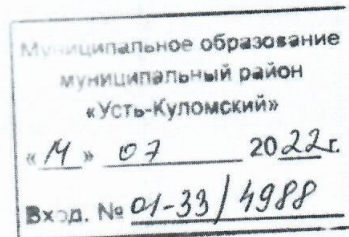 Муниципальное образование
муниципальный район
«Усть-Куломский»
«14» 07 2022г.
Вход. № 01-33/4988